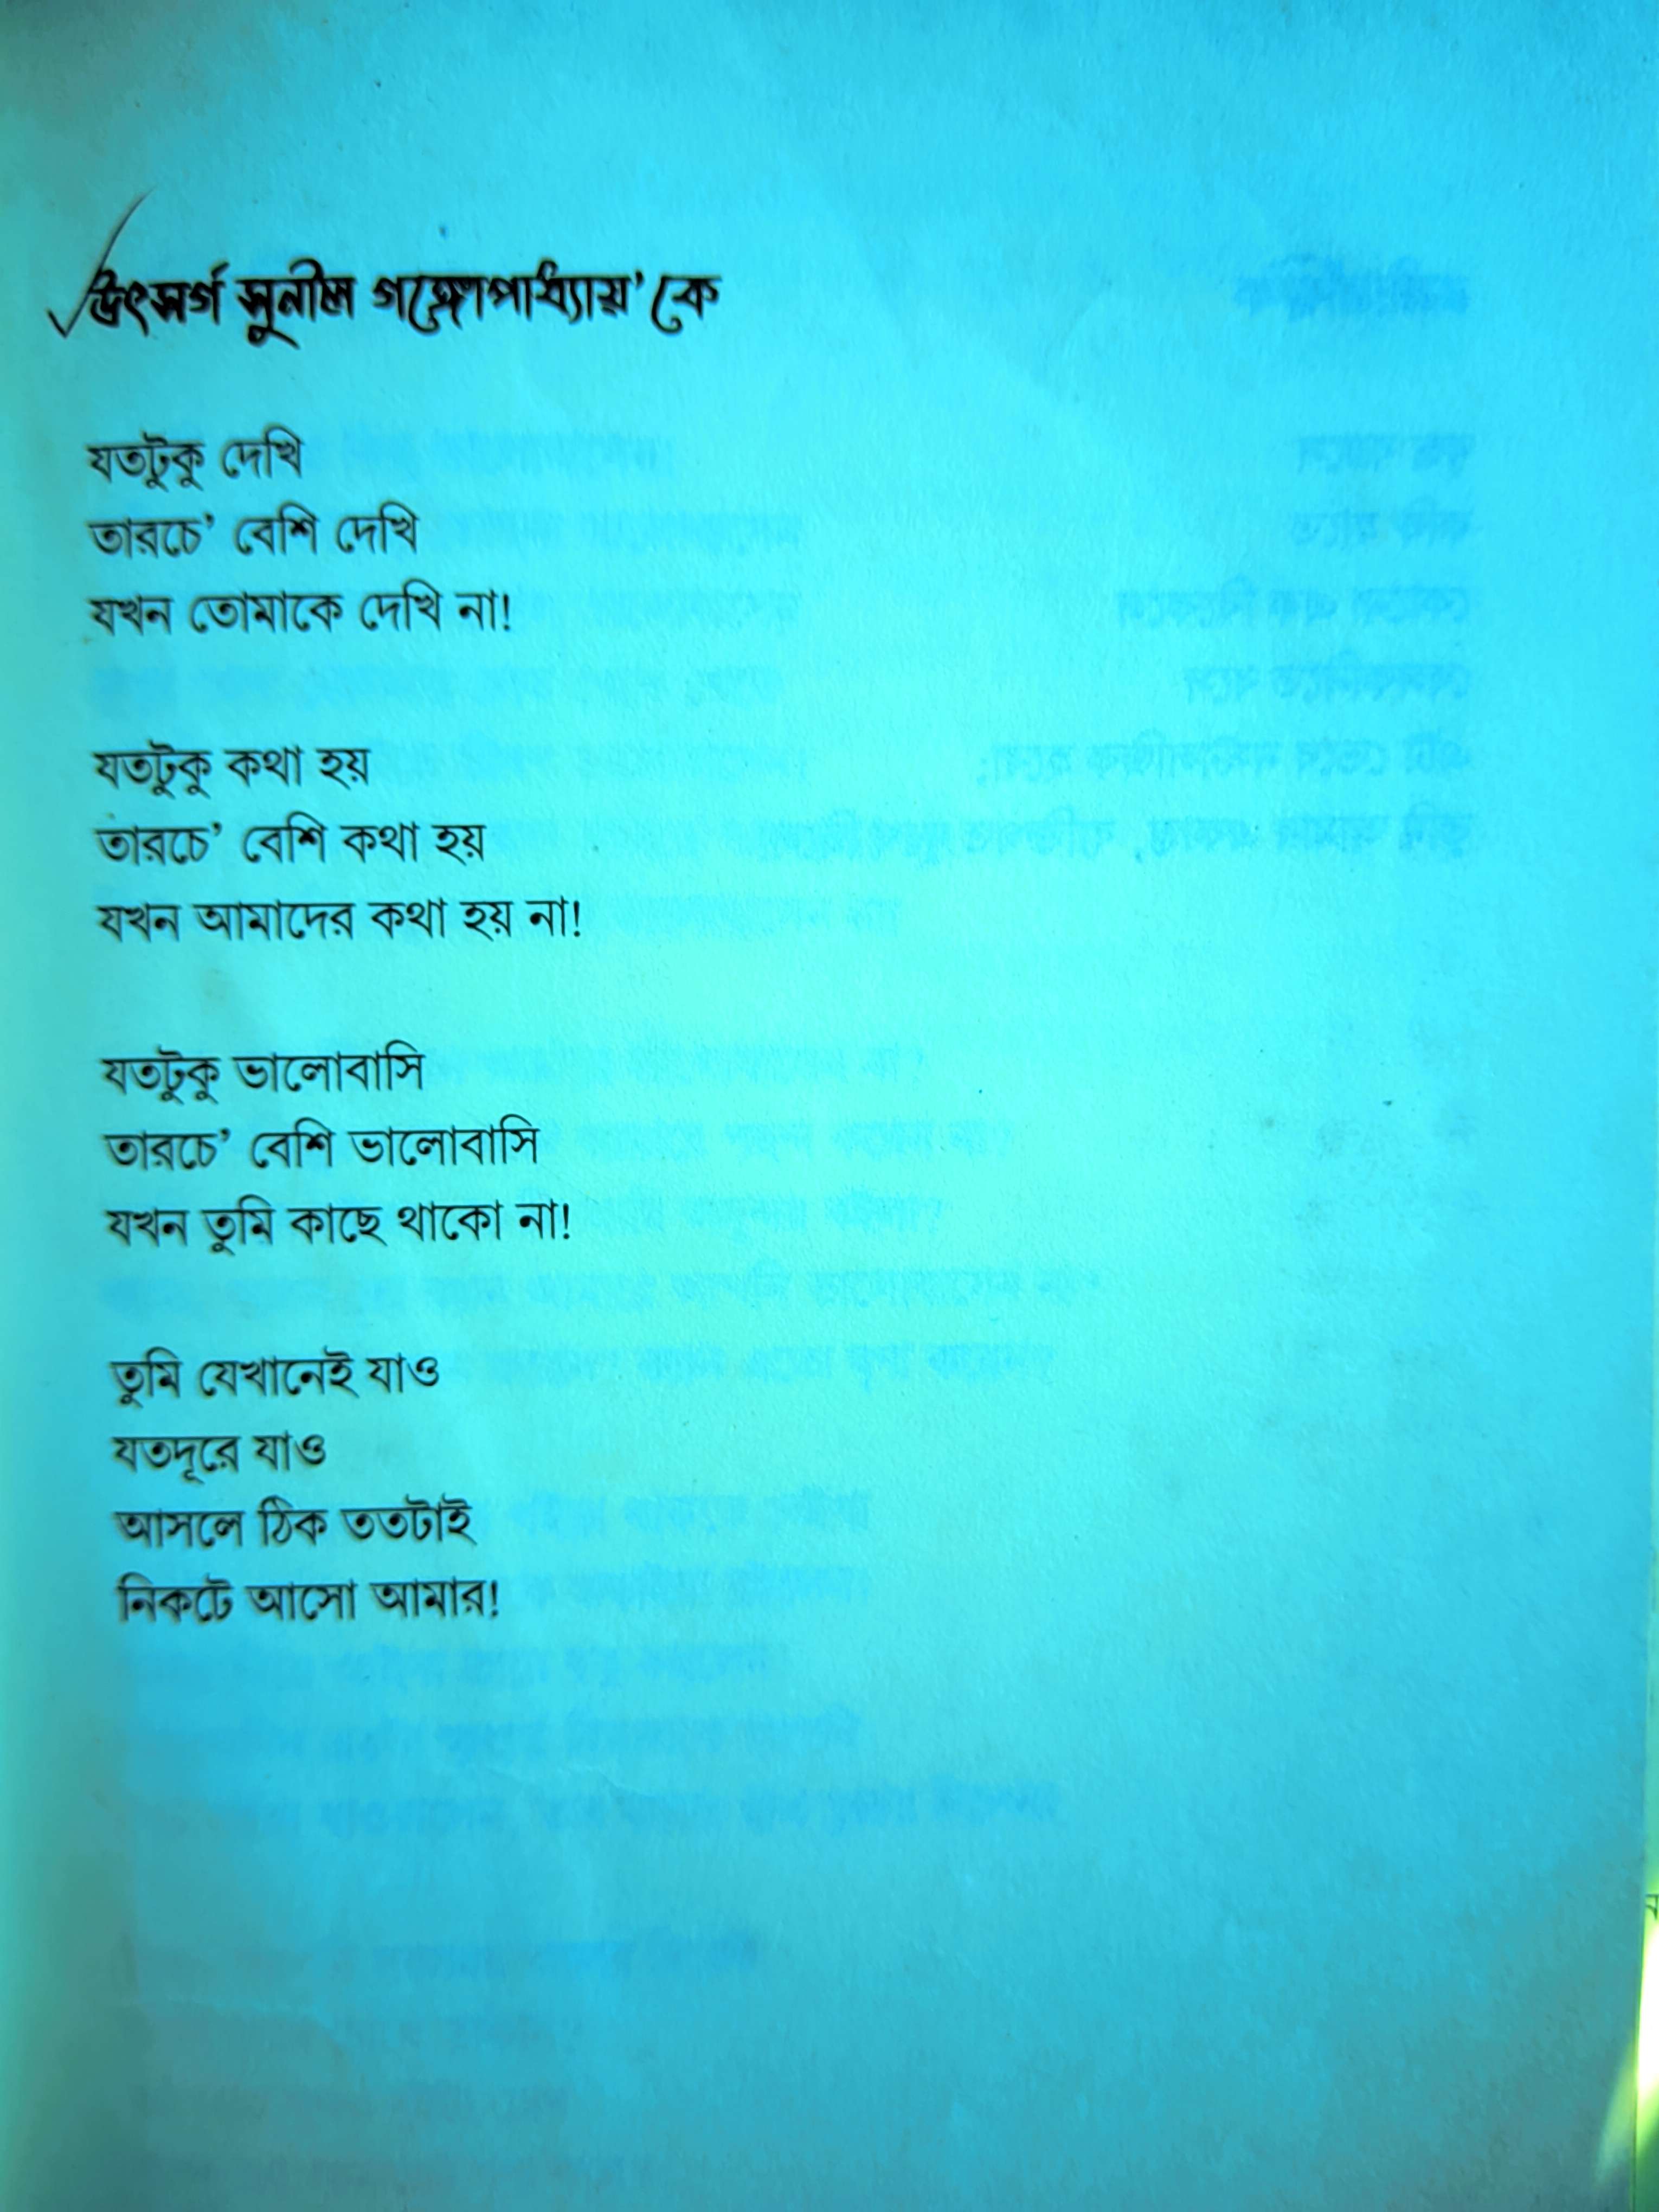 উৎসর্গ সুনীল গঙ্গোপাধ্যায়'কে
যতটুকু দেখি
তারচে’ বেশি দেখি
যখন তোমাকে দেখি না!
যতটুকু কথা হয়
তারচে’ বেশি কথা হয়
যখন আমাদের কথা হয় না!
যতটুকু ভালোবাসি
তারচে’ বেশি ভালোবাসি
যখন তুমি কাছে থাকো না!
তুমি যেখানেই যাও
যতদূরে যাও
আসলে ঠিক ততটাই
নিকটে আসো আমার!